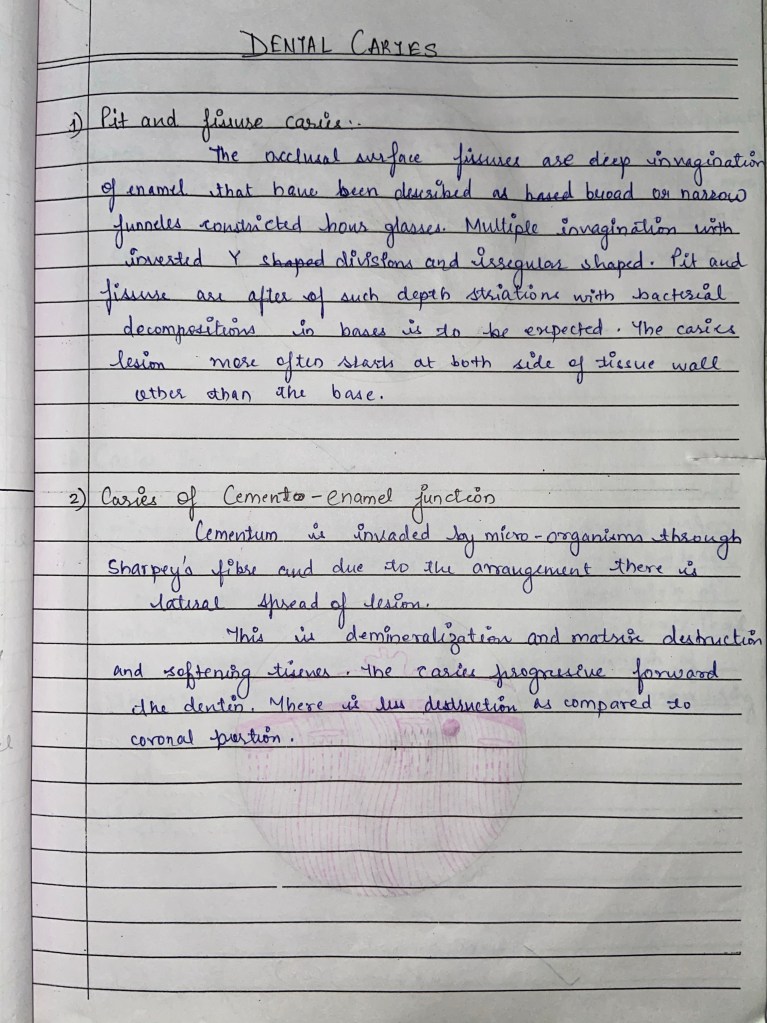 DENTAL CARIES
1) Pit and fissure caries:.
The occlusal surface fissures are deep invagination
of enamel that have been described as based broad or narrow
funneles constricted hour glasses. Multiple invagination with
inverted Y shaped divisions and irregular shaped. Pit and
fissure are after of such depth striations with bacterial
decompositions in bases is to be expected. The caries
lesion more often starts at both side of tissue wall
other than the base.
2) Caries of Cemento-enamel junction
Cementum is invaded by micro-organisms through
Sharpey's fibre and due to the arrangement there is
lateral spread of lesion.
This is demineralization and matrix destruction
and softening tissues. The caries progressive forward
the dentin. There is less destruction as compared to
coronal portion.